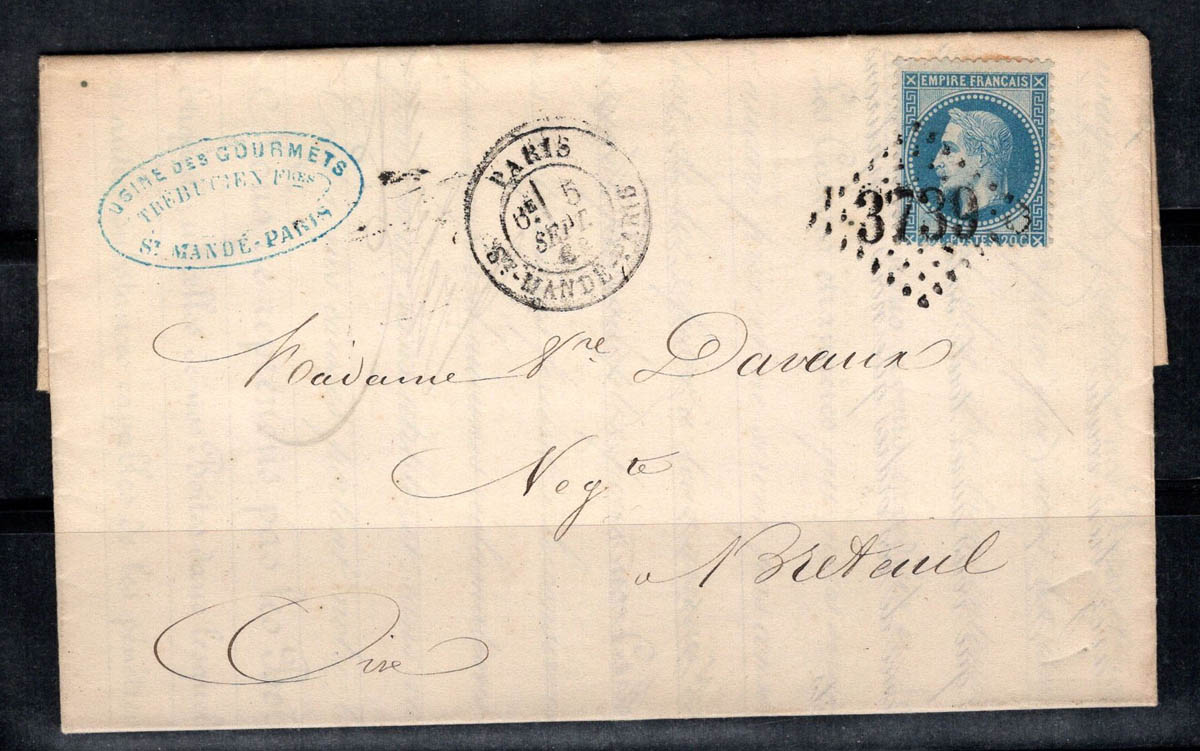 USINE DES GOURMETS
TRÉBUCIEN FRES
ST MANDÉ-PARIS
PARIS
6E 5
SEPT
ST-MANDÉ
EMPIRE FRANCAIS
3739
20C POSTES 20C
Madame Vve Davaux
Negte
à Breteuil
Oise